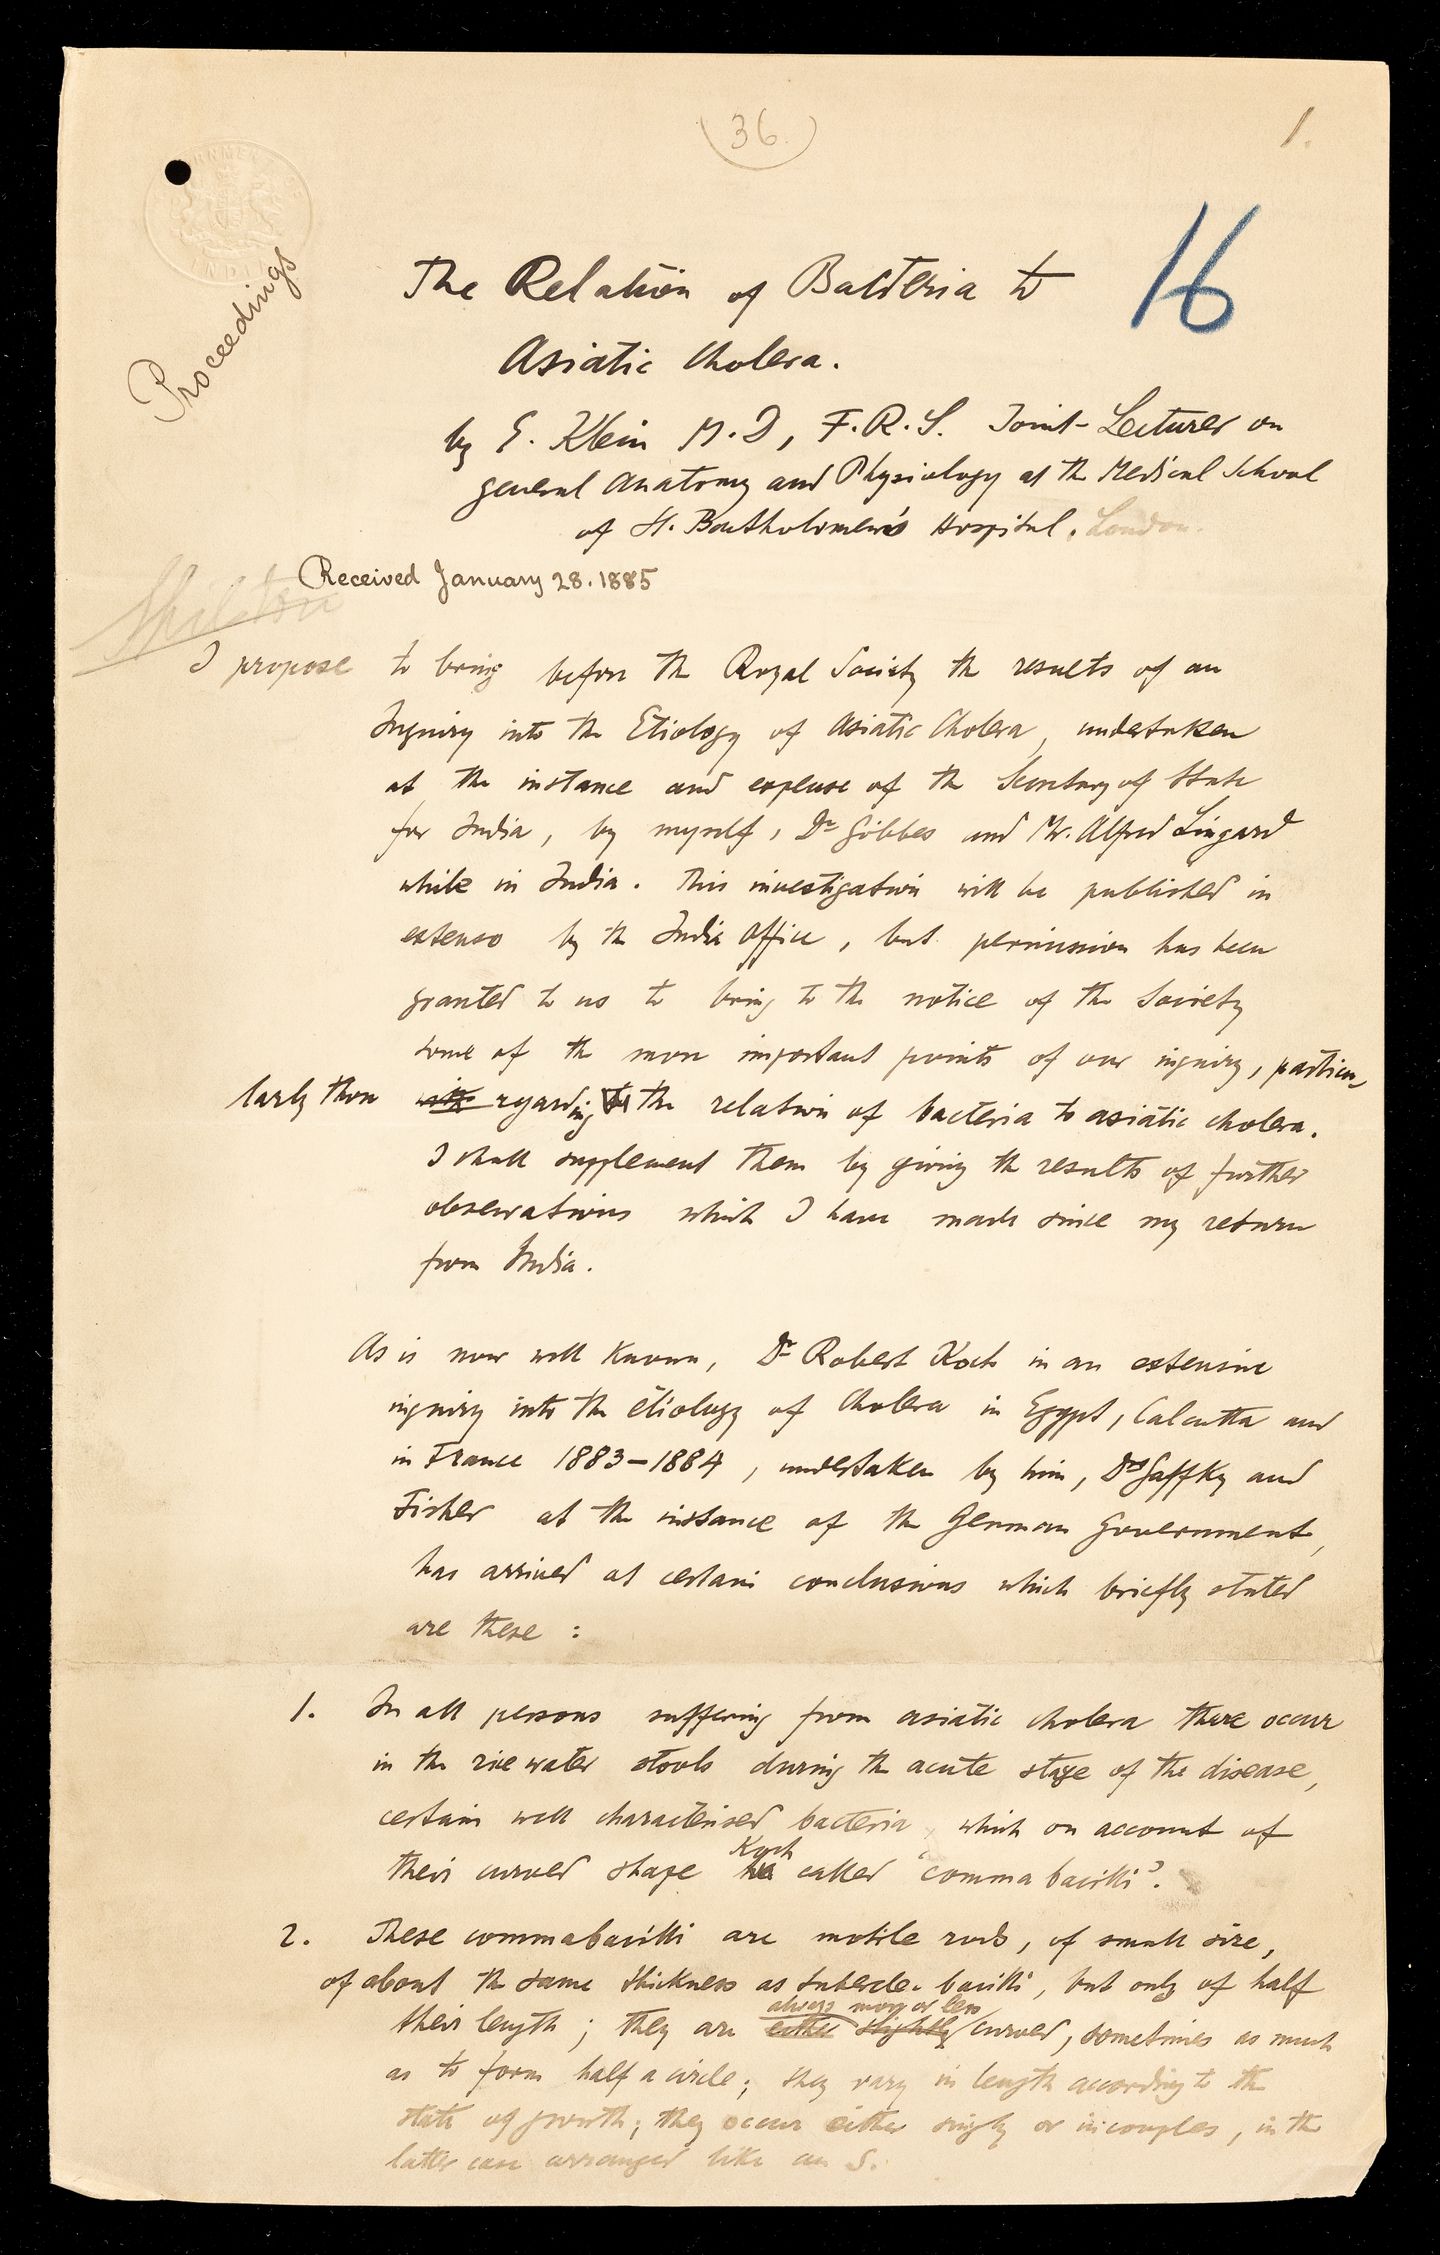 36.
1.
16
Proceedings
The Relation of Bacteria to
Asiatic Cholera.
by E. Klein M.D, F.R.S. Joint-Lecturer on
general Anatomy and Physiology at the Medical School
of St. Bartholomew's Hospital. London.
Received January 28. 1885
I propose to bring before the Royal Society the results of an
Inquiry into the Etiology of Asiatic Cholera, undertaken
at the instance and expense of the Secretary of State
for India, by myself, Dr Gibbes and Mr. Alfred Lingard
while in India. This investigation will be published in
extenso by the India Office, but permission has been
granted to us to bring to the notice of the Society
some of the more important points of our inquiry, particu-
larly those with regarding to the relation of bacteria to asiatic cholera.
I shall supplement them by giving the results of further
observations which I have made since my return
from India.
As is now well known, Dr Robert Koch in an extensive
inquiry into the etiology of Cholera in Egypt, Calcutta and
in France 1883-1884, undertaken by him, Drs Gaffky and
Fisher at the instance of the German Government,
has arrived at certain conclusions which briefly stated
are these :
1. In all persons suffering from asiatic cholera there occur
in the rice water stools during the acute stage of the disease,
certain well characterised bacteria, which on account of
Koch
their curved shape he called 'comma bacilli'.
2. These commabacilli are motile rods, of small size,
of about the same thickness as tubercle-bacilli, but only of half
always more or less
their length; they are either slightly curved, sometimes as much
as to form half a circle; they vary in length according to the
state of growth; they occur either singly or in couples, in the
latter case arranged like an S.